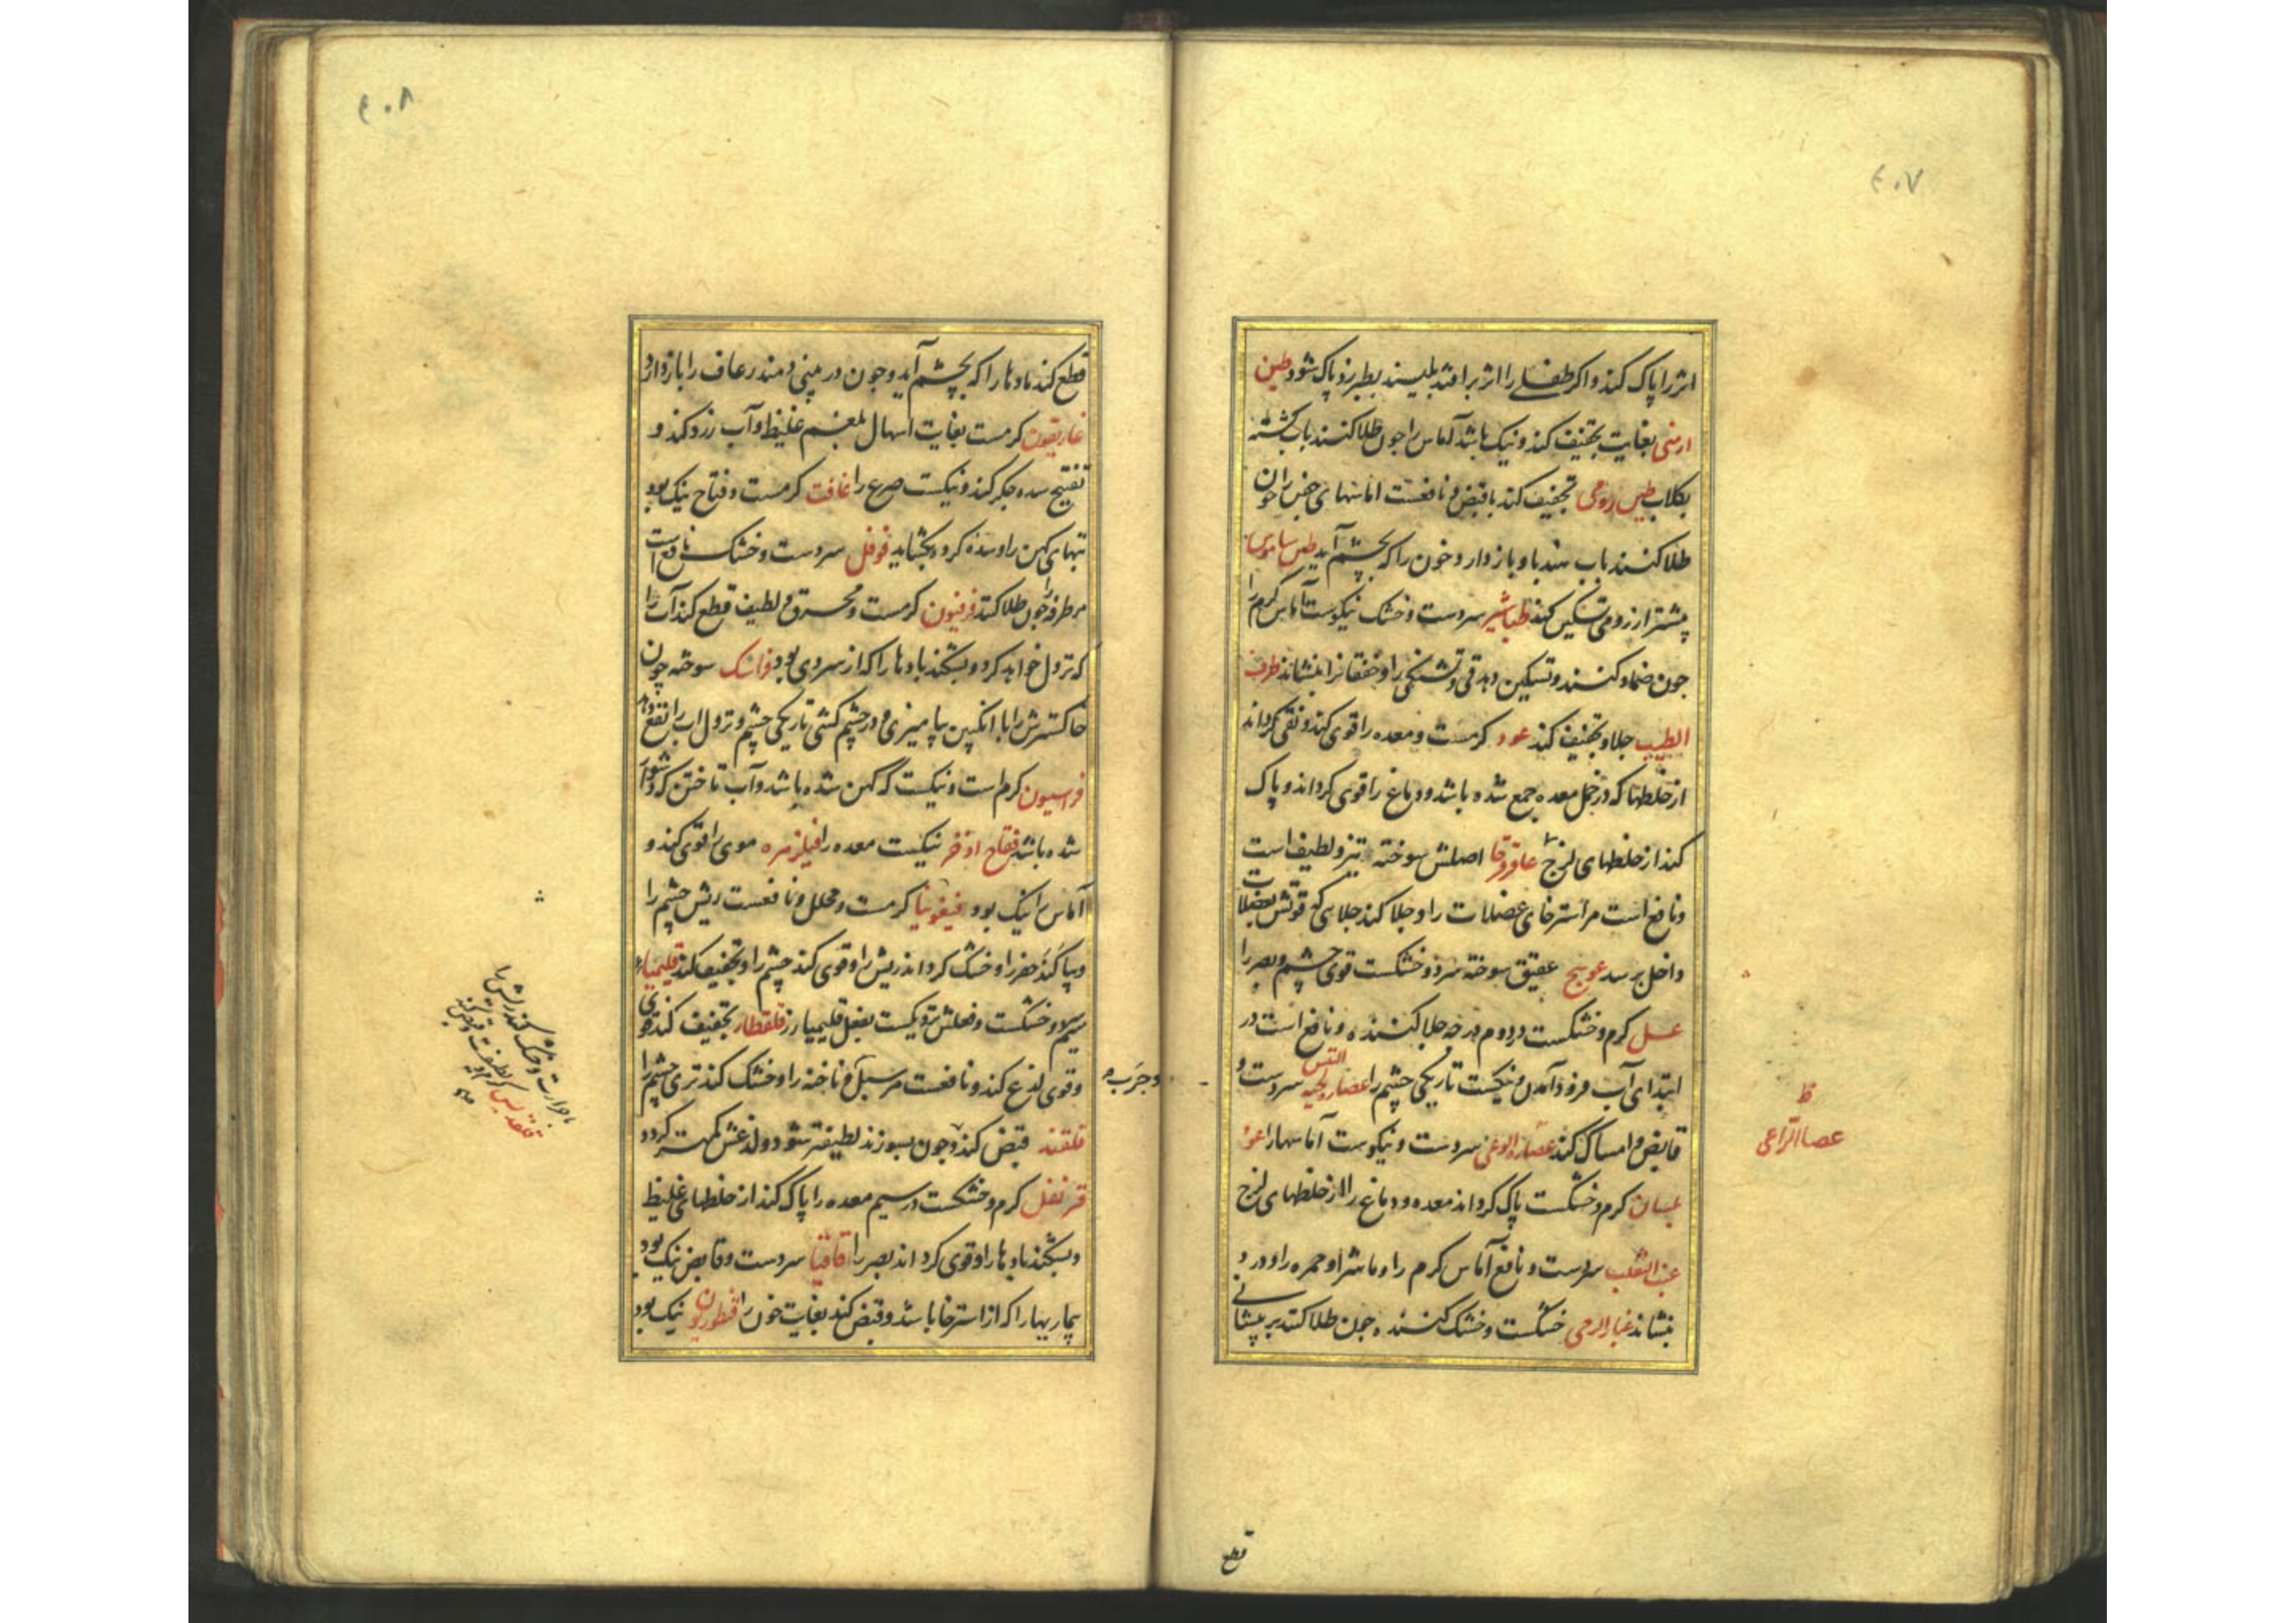 ٤٠٧
اثر را پاک کند و اکر طفلے را اثر بر افتد بلیسند بطبرزد پاک شود طین
ارمنی بغایت تجفیف کند و نیک باشد آماس را جون طلا کنند باب کشته
بکلاب طین رومی تجفیف کند با قبض و نافعست اماسهای جفن را جون
طلا کنند باب هندبا و باز دارد خون را که بچشم آید طین ساموسا
پیشتر از رومی تسکین کند طباشیر سردست و خشک نیکوست آماس کرم را
جون ضماد کنند و تسکین دهد قی و تشنکی را و خفقانرا بنشاند ظرف
الطیب جلا و تجفیف کند عود کرمست و معده را قوی کند و نقی کرداند
از خلطها که در خمل معده جمع شده باشد و دماغ را قوی کرداند و پاک
کند از خلطهای لزج عاقرقرحا اصلش سوخته تیز و لطیف است
و نافع است مر استرخای عضلات را و جلا کند جلایی که قوتش بعضلات
داخل برسد عوسج عقیق سوخته سرد و خشکست قوی چشم و بصر را
عسل کرم و خشکست در دوم درجه جلا کننده و نافع است در
ابتدای آب فرود آمدن و نیکست تاریکی چشم را عصاره لحیه التیس سردست و
قابض و امساک کند عصاره الراعی سردست و نیکوست آماسهارا عود
بلسان کرم و خشکست پاک کرداند معده و دماغ را از خلطهای لزج
عنب الثعلب سردست و نافع آماس کرم را و ماشرا و حمره را و درد
بنشاند غبار الرحی خشکست و خشک کننده جون طلا کنند بر پیشانی
ظ
عصا الراعی
قطع
٤٠٨
قطع کند مادها را که بچشم آید و جون در بینی دمند رعاف را باز دارد
غاریقون کرمست بغایت اسهال بلغم غلیظ و آب زرد کند و
تفتیح سده جکر کند و نیکست صرع را غافت کرمست و فتاح نیک بود
تبهای کهن را و سده کرده بکشاید فوفل سردست و خشک نافع است
مر طرفه را جون طلا کنند فرفیون کرمست و محرق و لطیف قطع کند آب را
که نزول خواهد کرد و بشکند بادها را که از سردی بود فراسک سوخته چون
خاکسترش را با انکبین بیامیزی و در چشم کشی تاریکی چشم و نزول اب را نفع دهد
فراسیون کرم است و نیکست که کهن شده باشد و آب تاختن که دشوار
شده باشد فقاح اذخر نیکست معده را فیلزهره موی را قوی کند و
آماس را نیک بود فیغونیا کرمست و محلل و نافعست ریش چشم را
و پاک کند حفر را و خشک کرداند ریش را و قوی کند چشم را و تجفیف کند قلیمیاء
سیم و خشکست و فعلش نزدیکست بفعل قلیمیا زر قلقطار تجفیف کند قوی
و قوی لذع کند و نافعست مر سبل و ناخنه را و خشک کند تری چشم را
و جرب
قلقند قبض کند و جون بسوزند لطیفتر شود و لذعش کمتر کردد
قرنفل کرم و خشکست در سیم معده را پاک کند از خلطهای غلیظ
و بشکند بادها را و قوی کرداند بصر را قاقیا سردست و قابض نیک بود
بیماریها را که از استرخا باشد و قبض کند بغایت خون را قنطوریون نیک بود